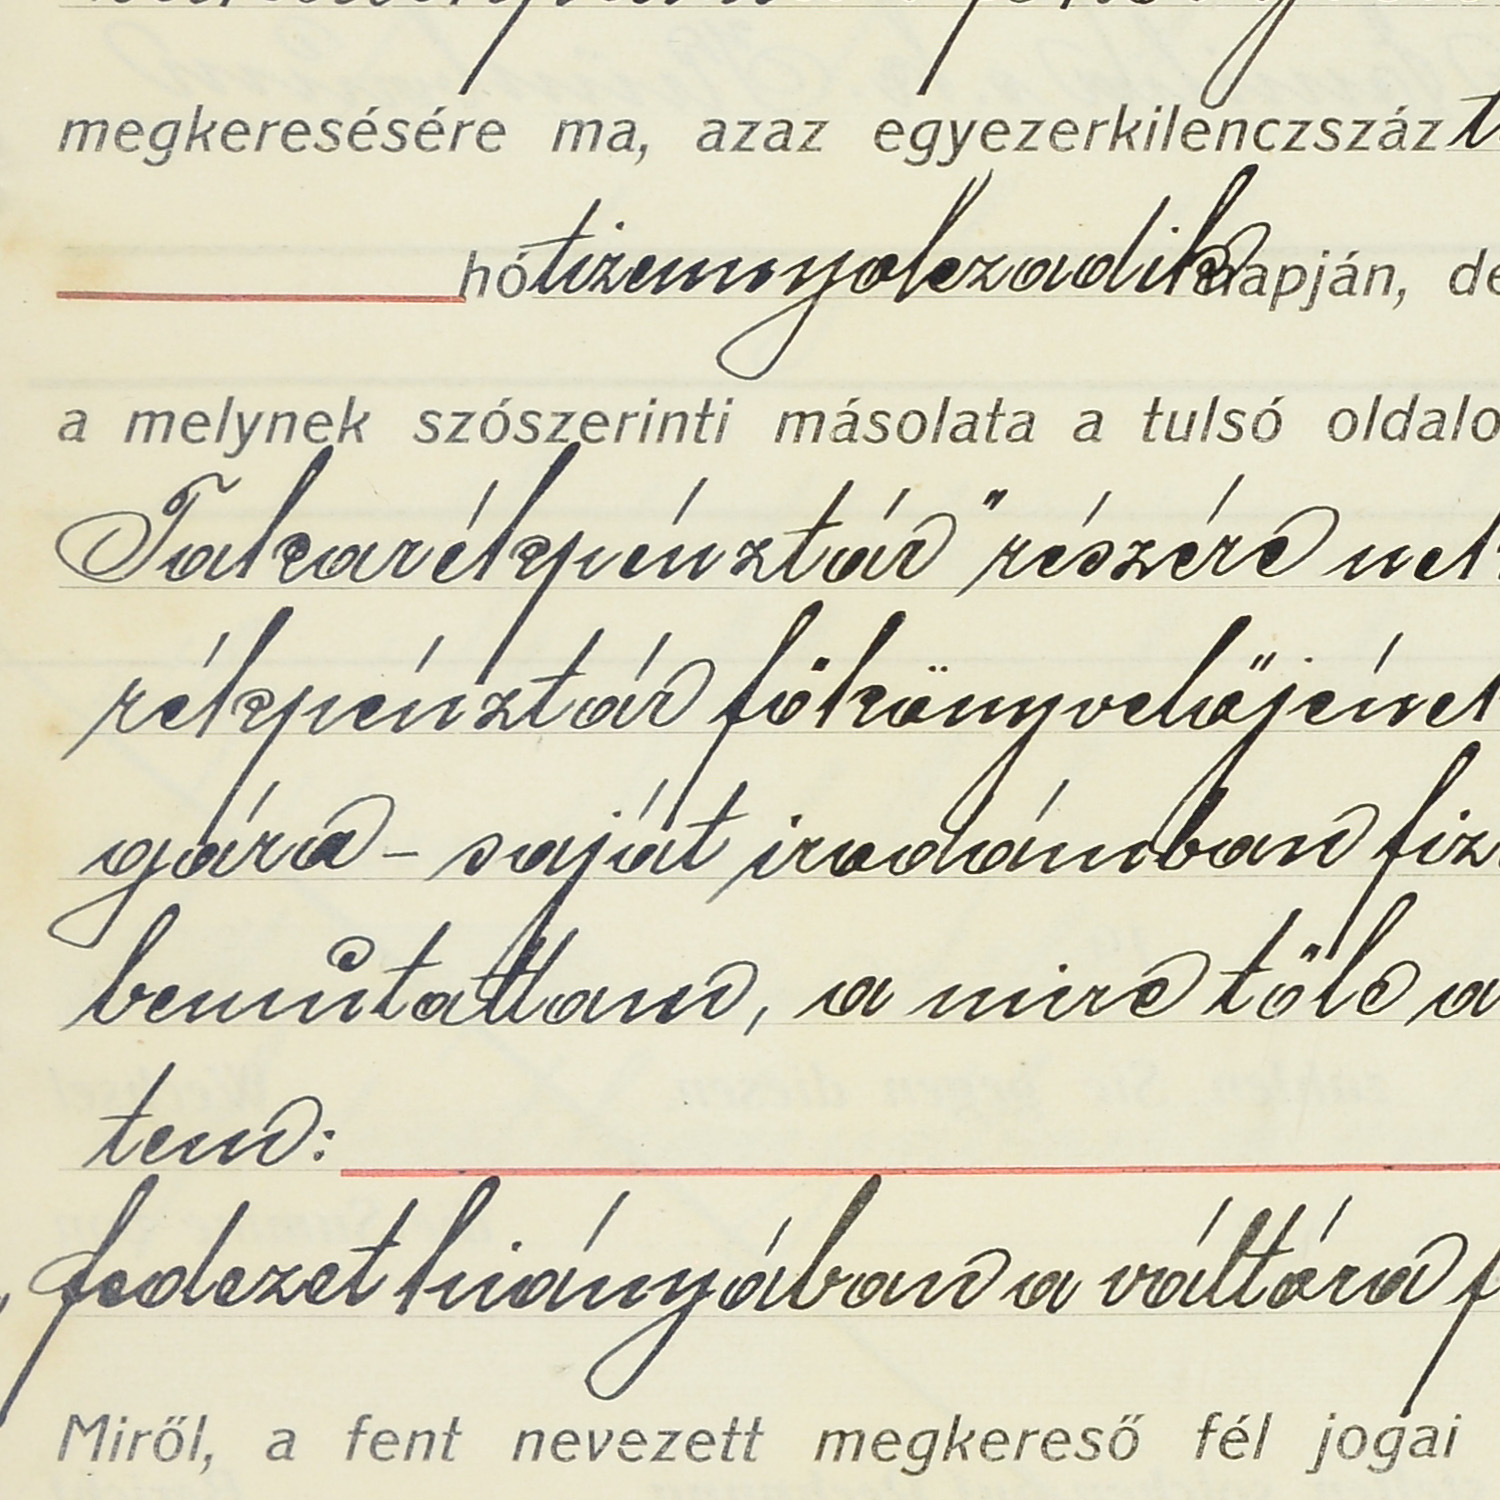 megkeresésére ma, azaz egyezerkilenczszáz
hó tizennyolczadik napján, de
a melynek szószerinti másolata a tulsó oldalo
Takarékpénztár" részére nek
rékpénztár főkönyvelőjének
gára - saját irodámban fiz
bemutattam, a mire tőle a
tem:
„fedezet hiányában a váltóra f
Miről, a fent nevezett megkereső fél jogai